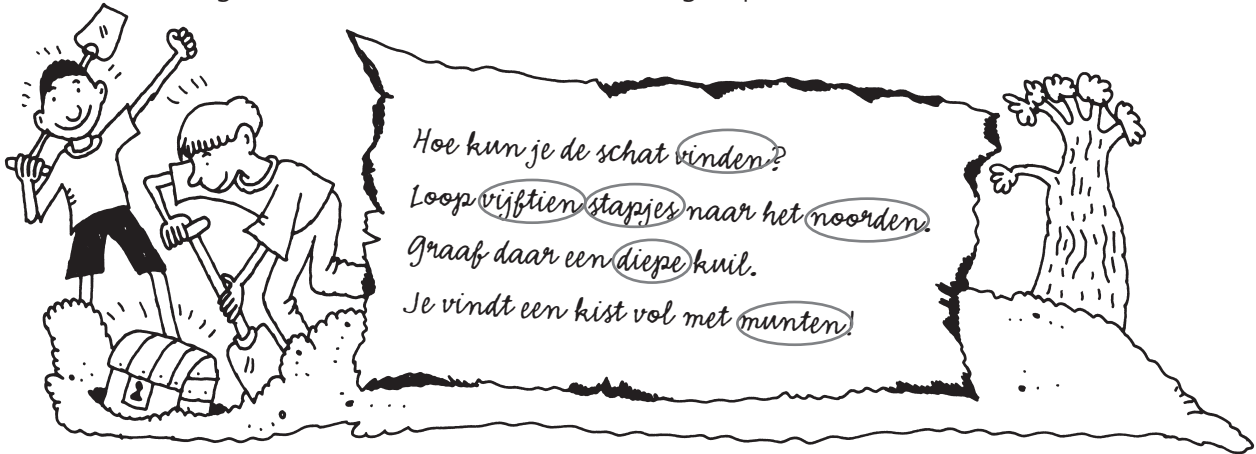 Hoe kun je de schat vinden?
Loop vijftien stapjes naar het noorden.
Graaf daar een diepe kuil.
Je vindt een kist vol met munten!